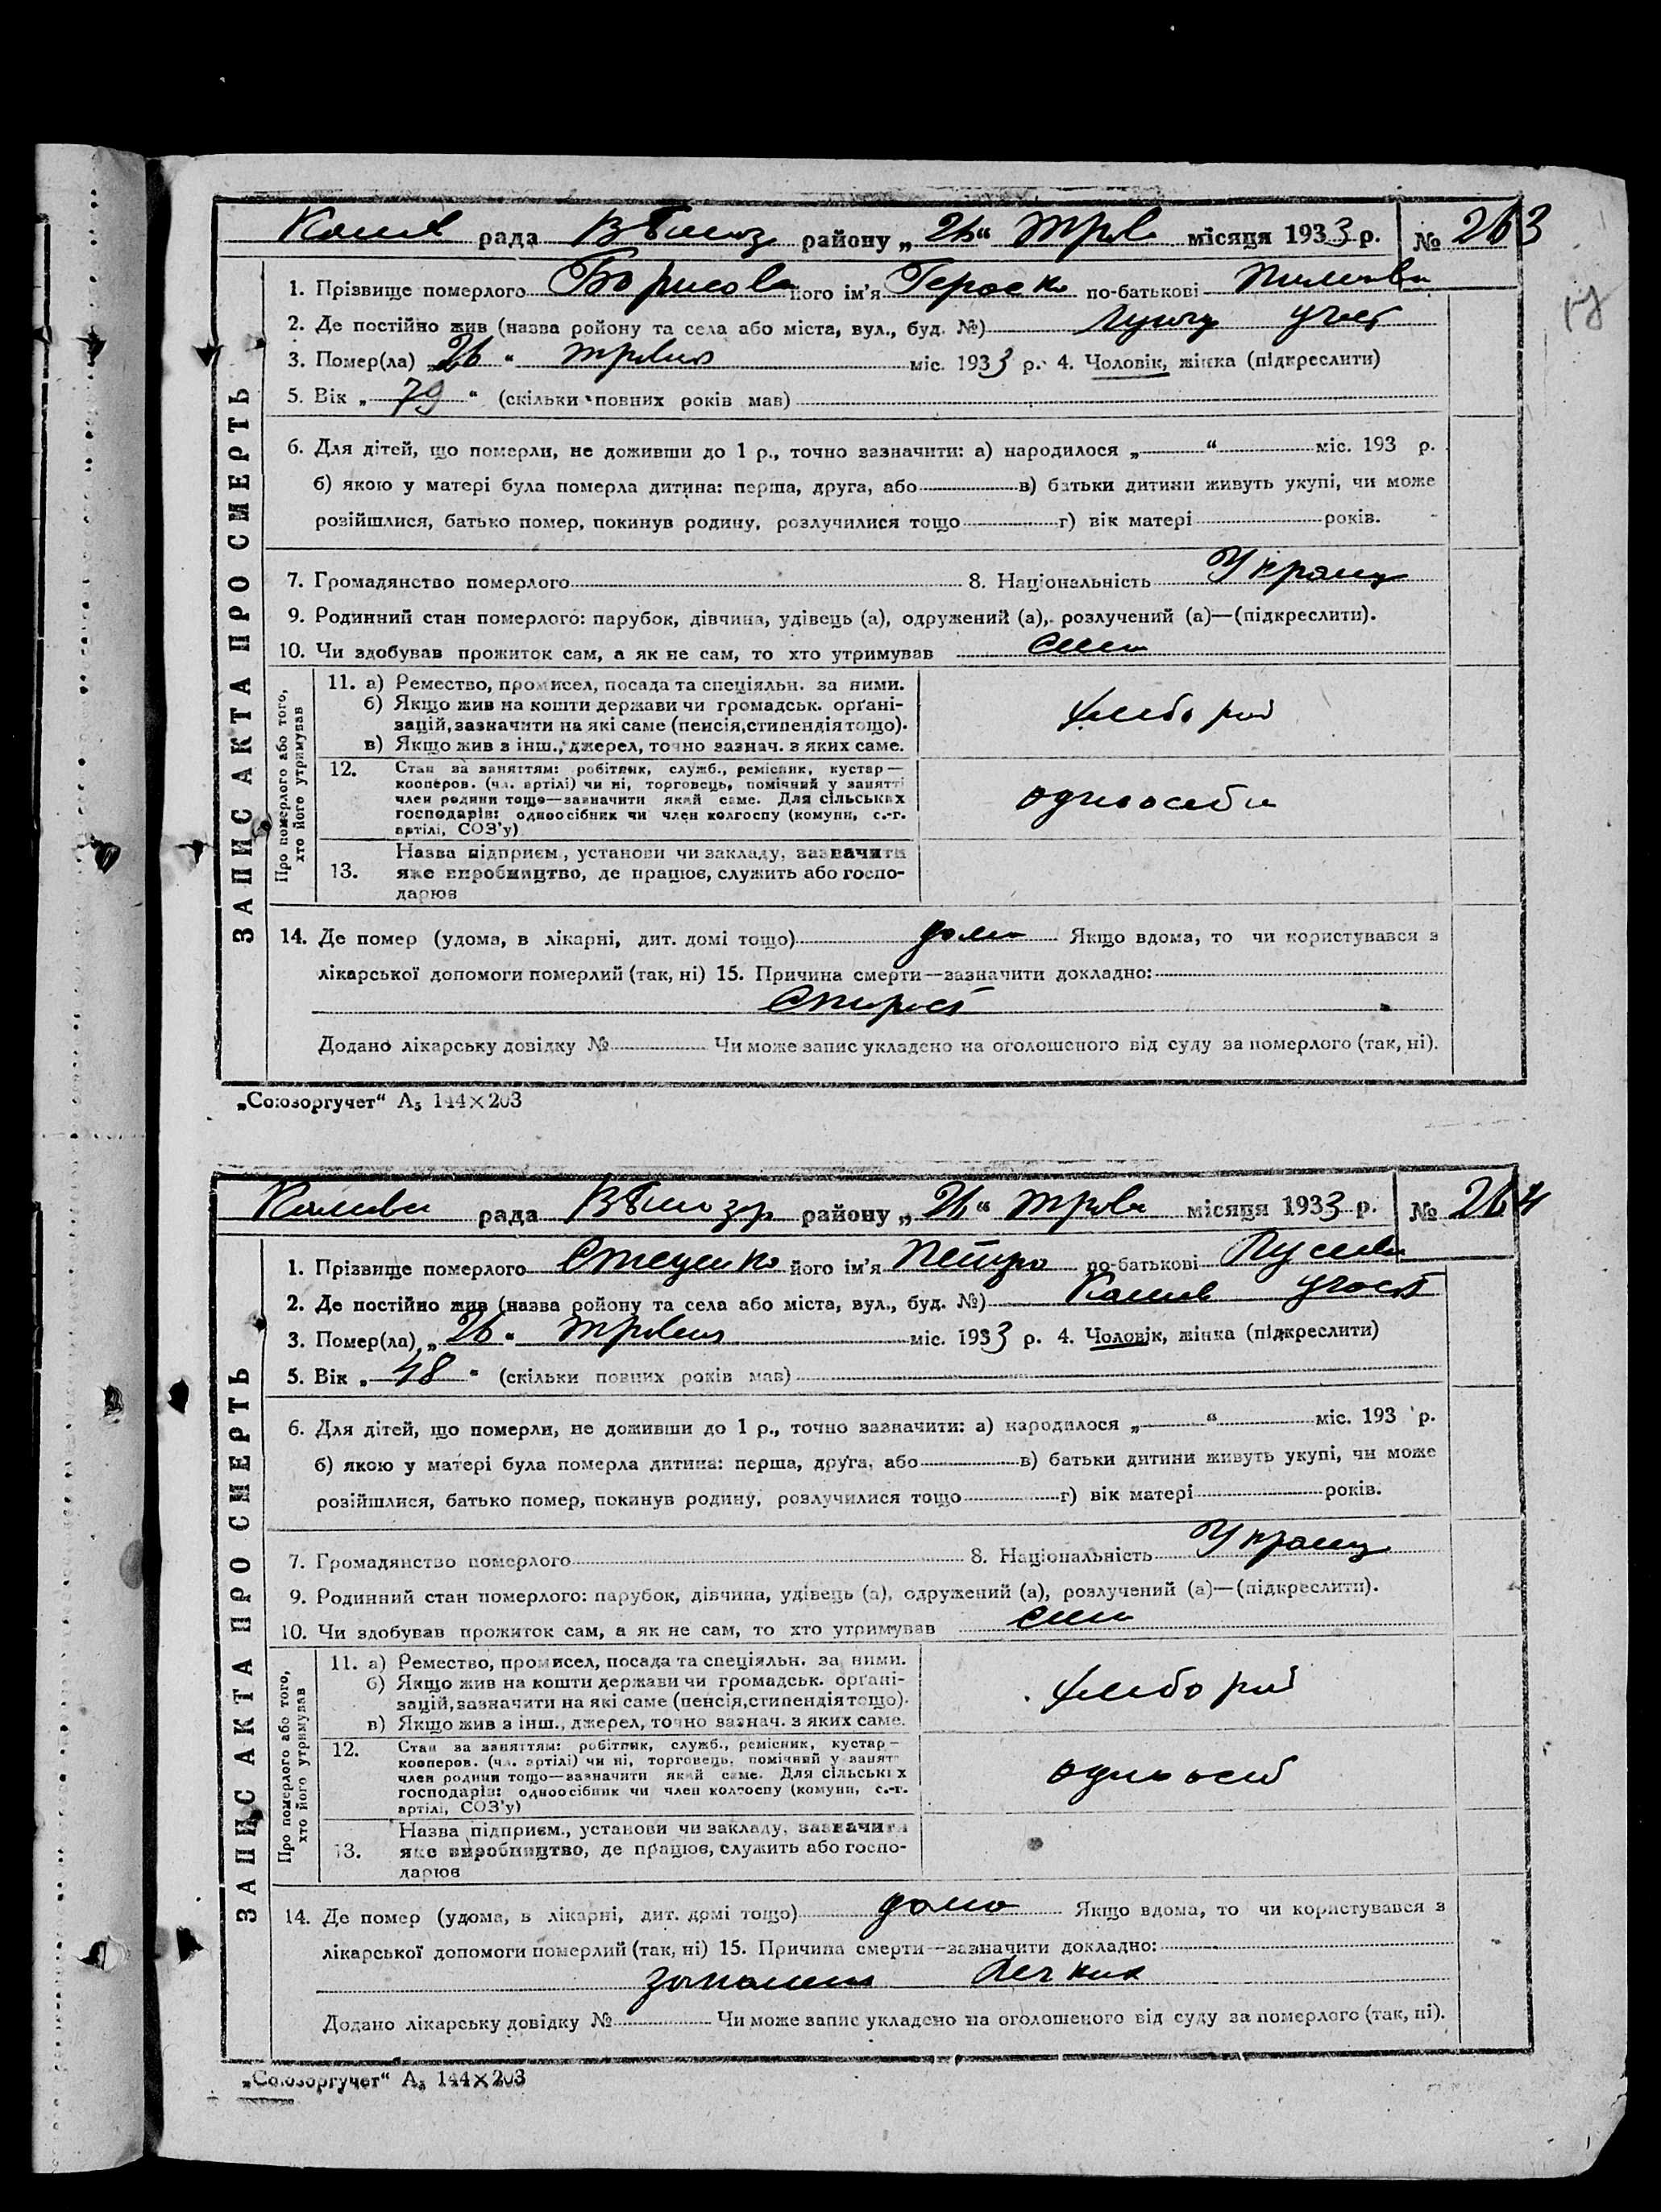 рада району „26“ Трав місяця 1933 р. № 263
1. Прізвище померлого його ім'я по-батькові
2. Де постійно жив (назва ройону та села або міста, вул., буд. №)
3. Помер(ла) „26“ травня міс. 1933 р. 4. Чоловік, жінка (підкреслити)
5. Вік „79“ (скільки повних років мав)
6. Для дітей, що померли, не доживши до 1 р., точно зазначити: а) народилося „ “ міс. 193 р.
б) якою у матері була померла дитина: перша, друга, або в) батьки дитини живуть укупі, чи може
розійшлися, батько помер, покинув родину, розлучилися тощо г) вік матері років.
7. Громадянство померлого 8. Національність Украінц
9. Родинний стан померлого: парубок, дівчина, удівець (а), одружений (а), розлучений (а)—(підкреслити).
10. Чи здобував прожиток сам, а як не сам, то хто утримував сам
ЗАПИС АКТА ПРО СМЕРТЬ
Про померлого або того,
хто його утримував
11. а) Ремество, промисел, посада та спеціяльн. за ними.
б) Якщо жив на кошти держави чи громадськ. орґані-
зацій, зазначити на які саме (пенсія, стипендія тощо).
в) Якщо жив з інш., джерел, точно зазнач. з яких саме.
хлебороб
12. Стан за заняттям: робітник, служб., ремісник, кустар—
кооперов. (чл. артілі) чи ні, торговець, помічний у занятті
член родини тощо—зазначити який саме. Для сільських
господарів: одноосібник чи член колгоспу (комуни, с.-г.
артілі, СОЗ'у)
13. Назва підприєм., установи чи закладу, зазначити
яке виробництво, де працює, служить або госпо-
дарює
14. Де помер (удома, в лікарні, дит. домі тощо) дома Якщо вдома, то чи користувався з
лікарської допомоги померлий (так, ні) 15. Причина смерти—зазначити докладно:
Старость
Додано лікарську довідку № Чи може запис укладено на оголошеного від суду за померлого (так, ні).
„Союзоргучет“ А₅ 144×203
рада району „26“ Трав місяця 1933 р. № 264
1. Прізвище померлого Стеценко його ім'я Петро по-батькові
2. Де постійно жив (назва ройону та села або міста, вул., буд. №)
3. Помер(ла) „26“ травня міс. 1933 р. 4. Чоловік, жінка (підкреслити)
5. Вік „48“ (скільки повних років мав)
6. Для дітей, що померли, не доживши до 1 р., точно зазначити: а) народилося „ “ міс. 193 р.
б) якою у матері була померла дитина: перша, друга, або в) батьки дитини живуть укупі, чи може
розійшлися, батько помер, покинув родину, розлучилися тощо г) вік матері років.
7. Громадянство померлого 8. Національність Украінц
9. Родинний стан померлого: парубок, дівчина, удівець (а), одружений (а), розлучений (а)—(підкреслити).
10. Чи здобував прожиток сам, а як не сам, то хто утримував сам
ЗАПИС АКТА ПРО СМЕРТЬ
Про померлого або того,
хто його утримував
11. а) Ремество, промисел, посада та спеціяльн. за ними.
б) Якщо жив на кошти держави чи громадськ. орґані-
зацій, зазначити на які саме (пенсія, стипендія тощо).
в) Якщо жив з інш., джерел, точно зазнач. з яких саме.
хлебороб
12. Стан за заняттям: робітник, служб., ремісник, кустар—
кооперов. (чл. артілі) чи ні, торговець, помічний у занятт
член родини тощо—зазначити який саме. Для сільських
господарів: одноосібник чи член колгоспу (комуни, с.-г.
артілі, СОЗ'у)
одноосіб
13. Назва підприєм., установи чи закладу, зазначити
яке виробництво, де працює, служить або госпо-
дарює
14. Де помер (удома, в лікарні, дит. домі тощо) дома Якщо вдома, то чи користувався з
лікарської допомоги померлий (так, ні) 15. Причина смерти—зазначити докладно:
запаления легких
Додано лікарську довідку № Чи може запис укладено на оголошеного від суду за померлого (так, ні).
„Союзоргучет“ А₅ 144×203